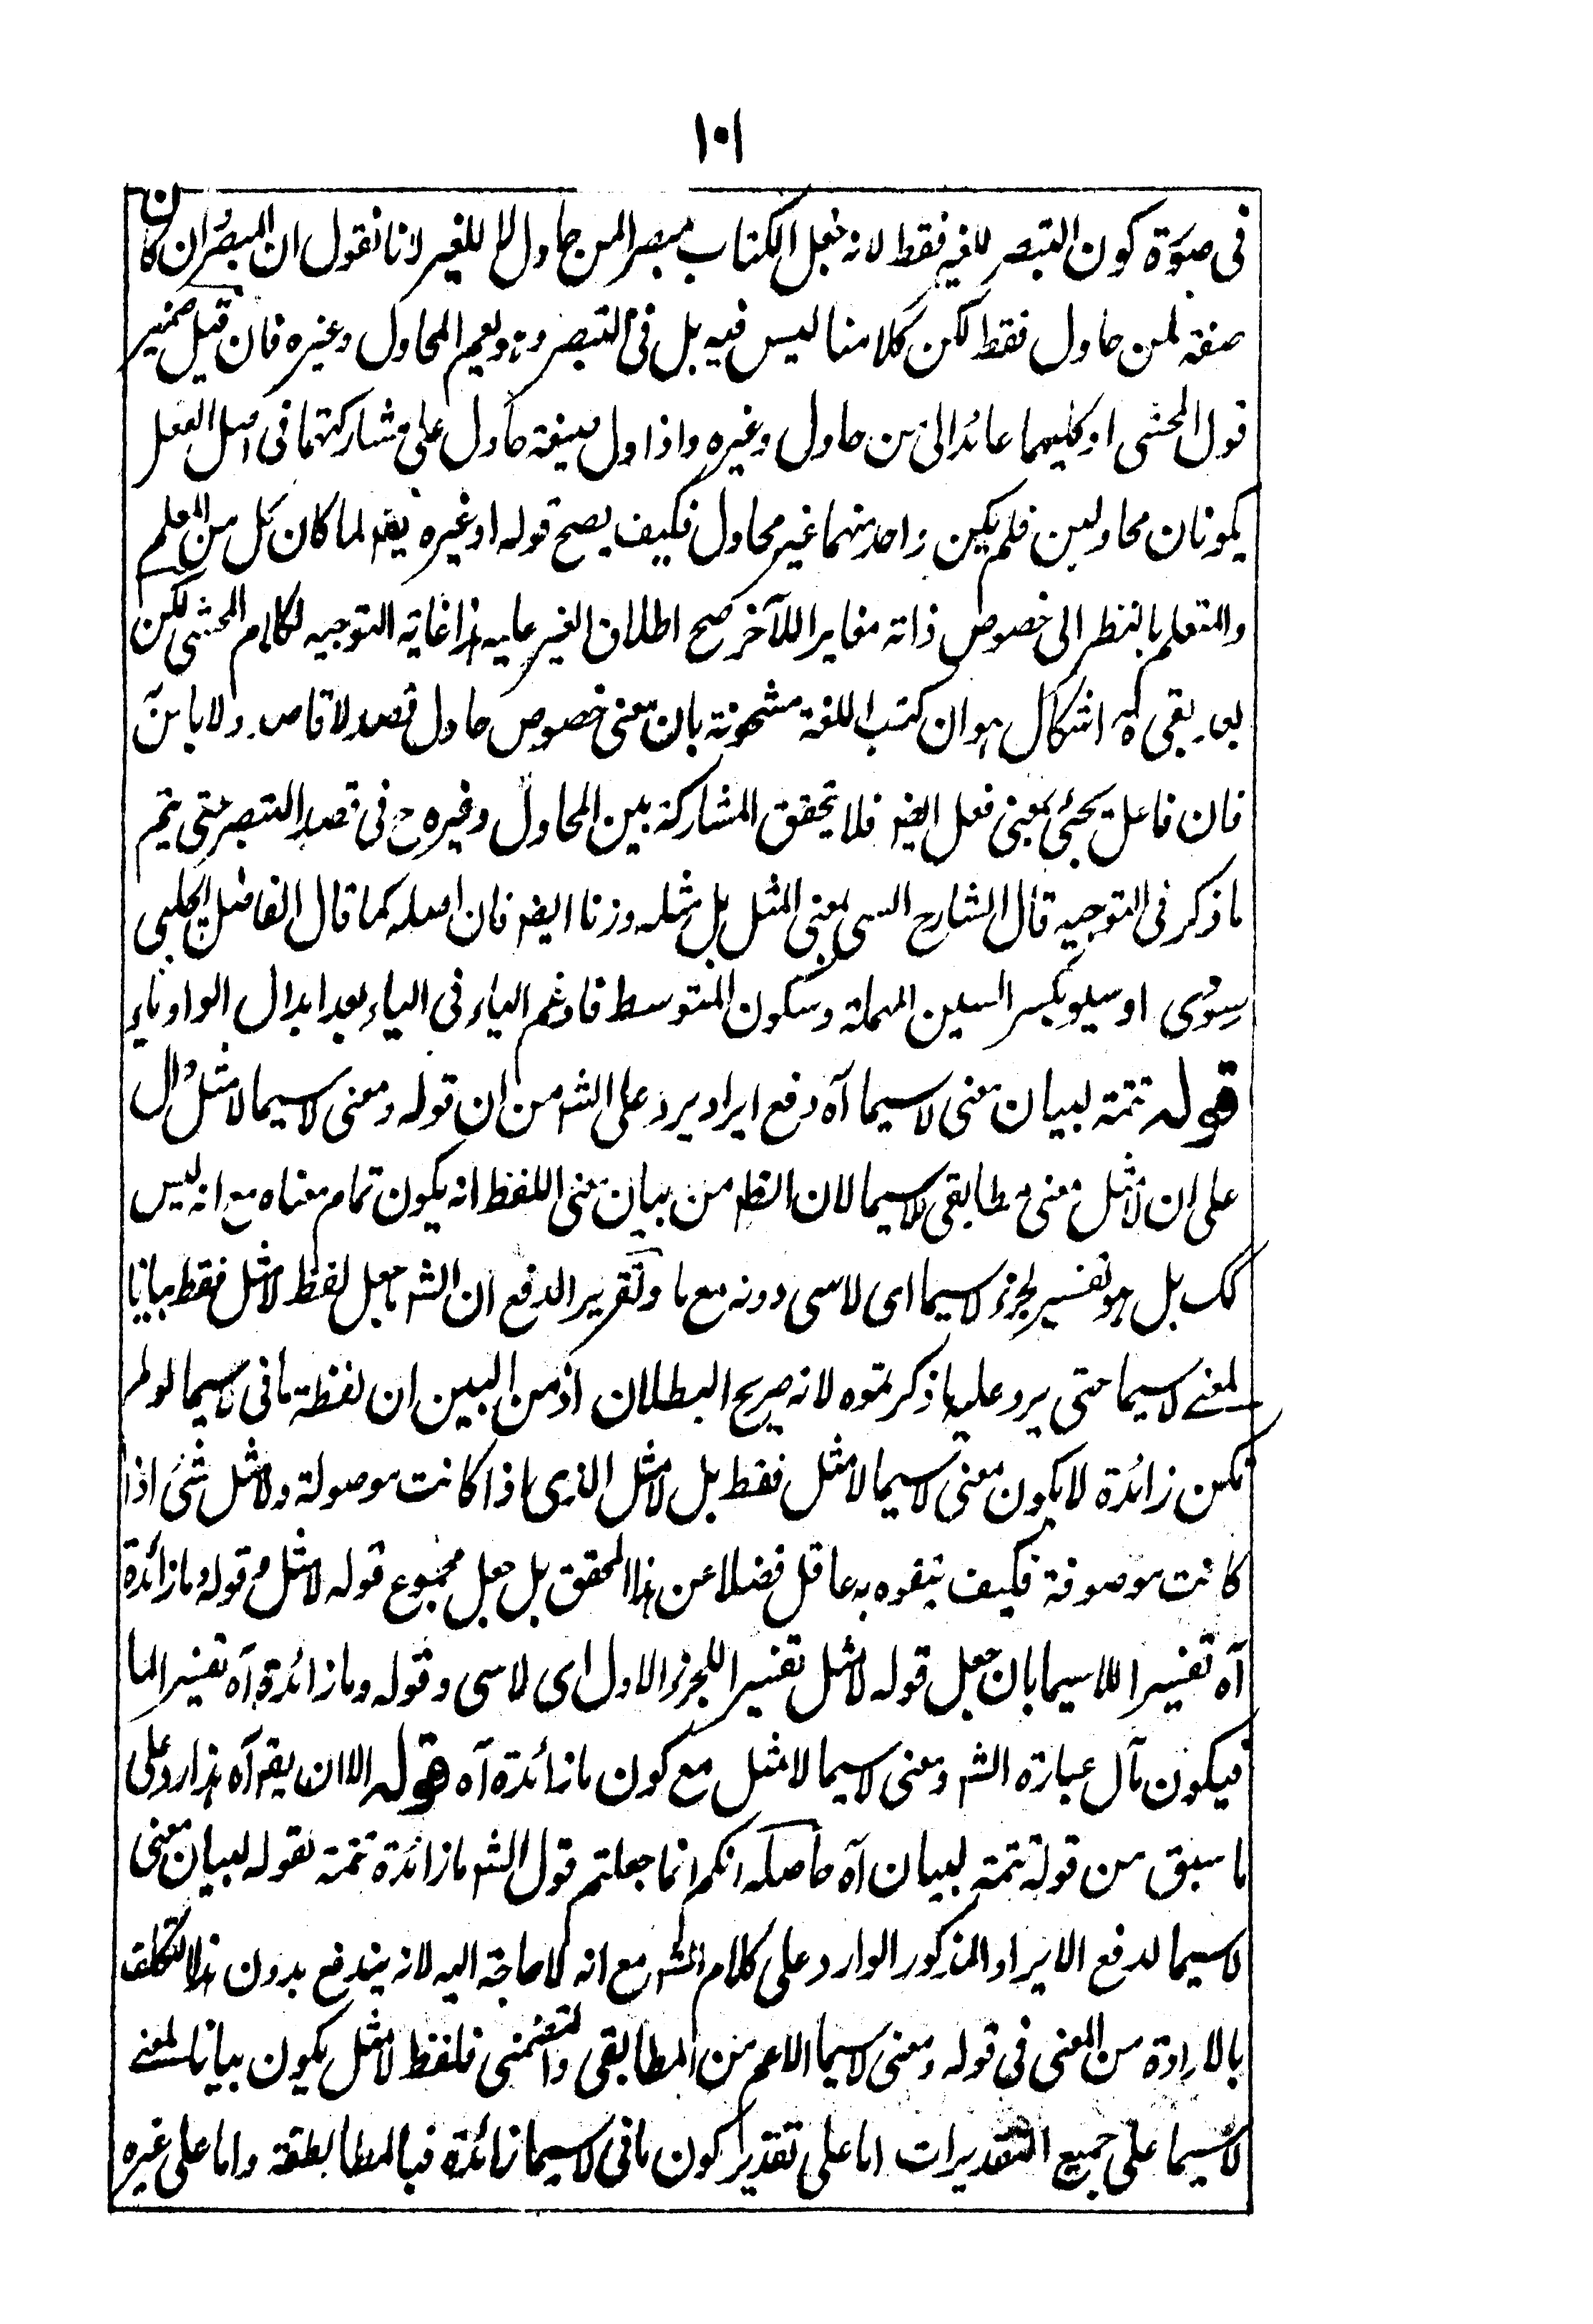 ١٠١
فى صورة كون التبصر للغير فقط لانه جعل الكتاب مبصرا لمن حاول لا للغير لانا نقول ان المبصر ان كان
صفة لمن حاول فقط لكن كلامنا ليس فيه بل فى التبصر وهو يعم المحاول وغيره فان قيل ضمير
قول المحشى او كليهما عائد الى من حاول وغيره واذا اول صيغة حاول على مشاركتهما فى اصل الفعل
يكونان محاولين فلم يكن واحد منهما غير محاول فكيف يصح قوله او غيره يقه لما كان كل من المعلم
والمتعلم بالنظر الى خصوص ذاته مغايرا للآخر صح اطلاق الغير عليه هذا غاية التوجيه لكلام المحشى لكن
يبقى اشكال هو ان كتب اللغة مشحونة بان معنى خصوص حاول قصد لا قاصد ولا باس
فان فاعل يجئ بمعنى فعل ايضه فلا تحقق المشاركة بين المحاول وغيره ح فى قصد التبصر حتى يتم
ما ذكر فى التوجيه قال الشارح السى بمعنى المثل بل مثله وزنا ايضه فان اصله كما قال الفاضل الجلبى
سوى او سيو بكسر السين المهملة وسكون المتوسط فادغم الياء فى الياء بعد ابدال الواو ياء
قوله تتمة لبيان معنى لاسيما آه دفع ايراد يرد على الشه من ان قوله ومعنى لاسيما لا مثل دال
على ان لا مثل معنى مطابقى للاسيما لان الظه من بيان معنى اللفظ انه يكون تمام معناه مع انه ليس
كك بل هو تفسير لجزء لاسيما اى لا سى دونه مع ما وتقرير الدفع ان الشه ما جعل لفظ لا مثل فقط بيانا
لمعنى لاسيما حتى يرد عليه ما ذكرتموه لانه صريح البطلان اذ من البين ان لفظة ما فى لاسيما لو لم
تكن زائدة لا يكون معنى لاسيما لا مثل فقط بل لا مثل الذى اذا كانت موصولة ولا مثل شئ اذا
كانت موصوفة فكيف يتفوه به عاقل فضلا عن هذا المحقق بل جعل مجموع قوله لا مثل وقوله وما زائدة
آه تفسيرا للاسيما بان جعل قوله لا مثل تفسيرا للجزء الاول اى لا سى وقوله وما زائدة آه تفسيرا لما
فيكون مآل عبارة الشه ومعنى لاسيما لا مثل مع كون ما زائدة آه قوله الا ان يقه آه هذا رد على
ما سبق من قوله تتمة لبيان آه حاصله انكم انما جعلتم قول الشه ما زائدة تتمة لقوله لبيان معنى
لاسيما لدفع الايراد المذكور الوارد على كلام الشه مع انه لا حاجة اليه لانه يندفع بدون هذا التكلف
بالارادة من المعنى فى قوله ومعنى لاسيما الاعم من المطابقى والتضمنى فلفظ لا مثل يكون بيانا لمعنى
لاسيما على جميع التقديرات اما على تقدير كون ما فى لاسيما زائدة فبالمطابطقة واما على غيره